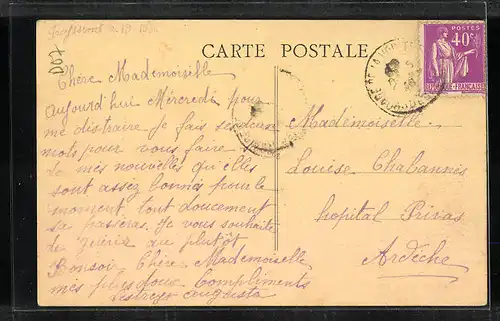 CARTE POSTALE
POSTES
40c
D07
Chère Mademoiselle
aujourd'hui Mércredi pour
me distraire Je fais
mots pour vous faire
de mes nouvelles qu'elles
sont assez bonnes pour le
moment tout doucement
sa passeras Je vous souhaite
de Guérir au plutôt
Bonsoir Chère Mademoiselle
mes plus doux Compliments
Lestreyes augusta
Mademoiselle
Louise Chabannes
hopital Privas
Ardèche